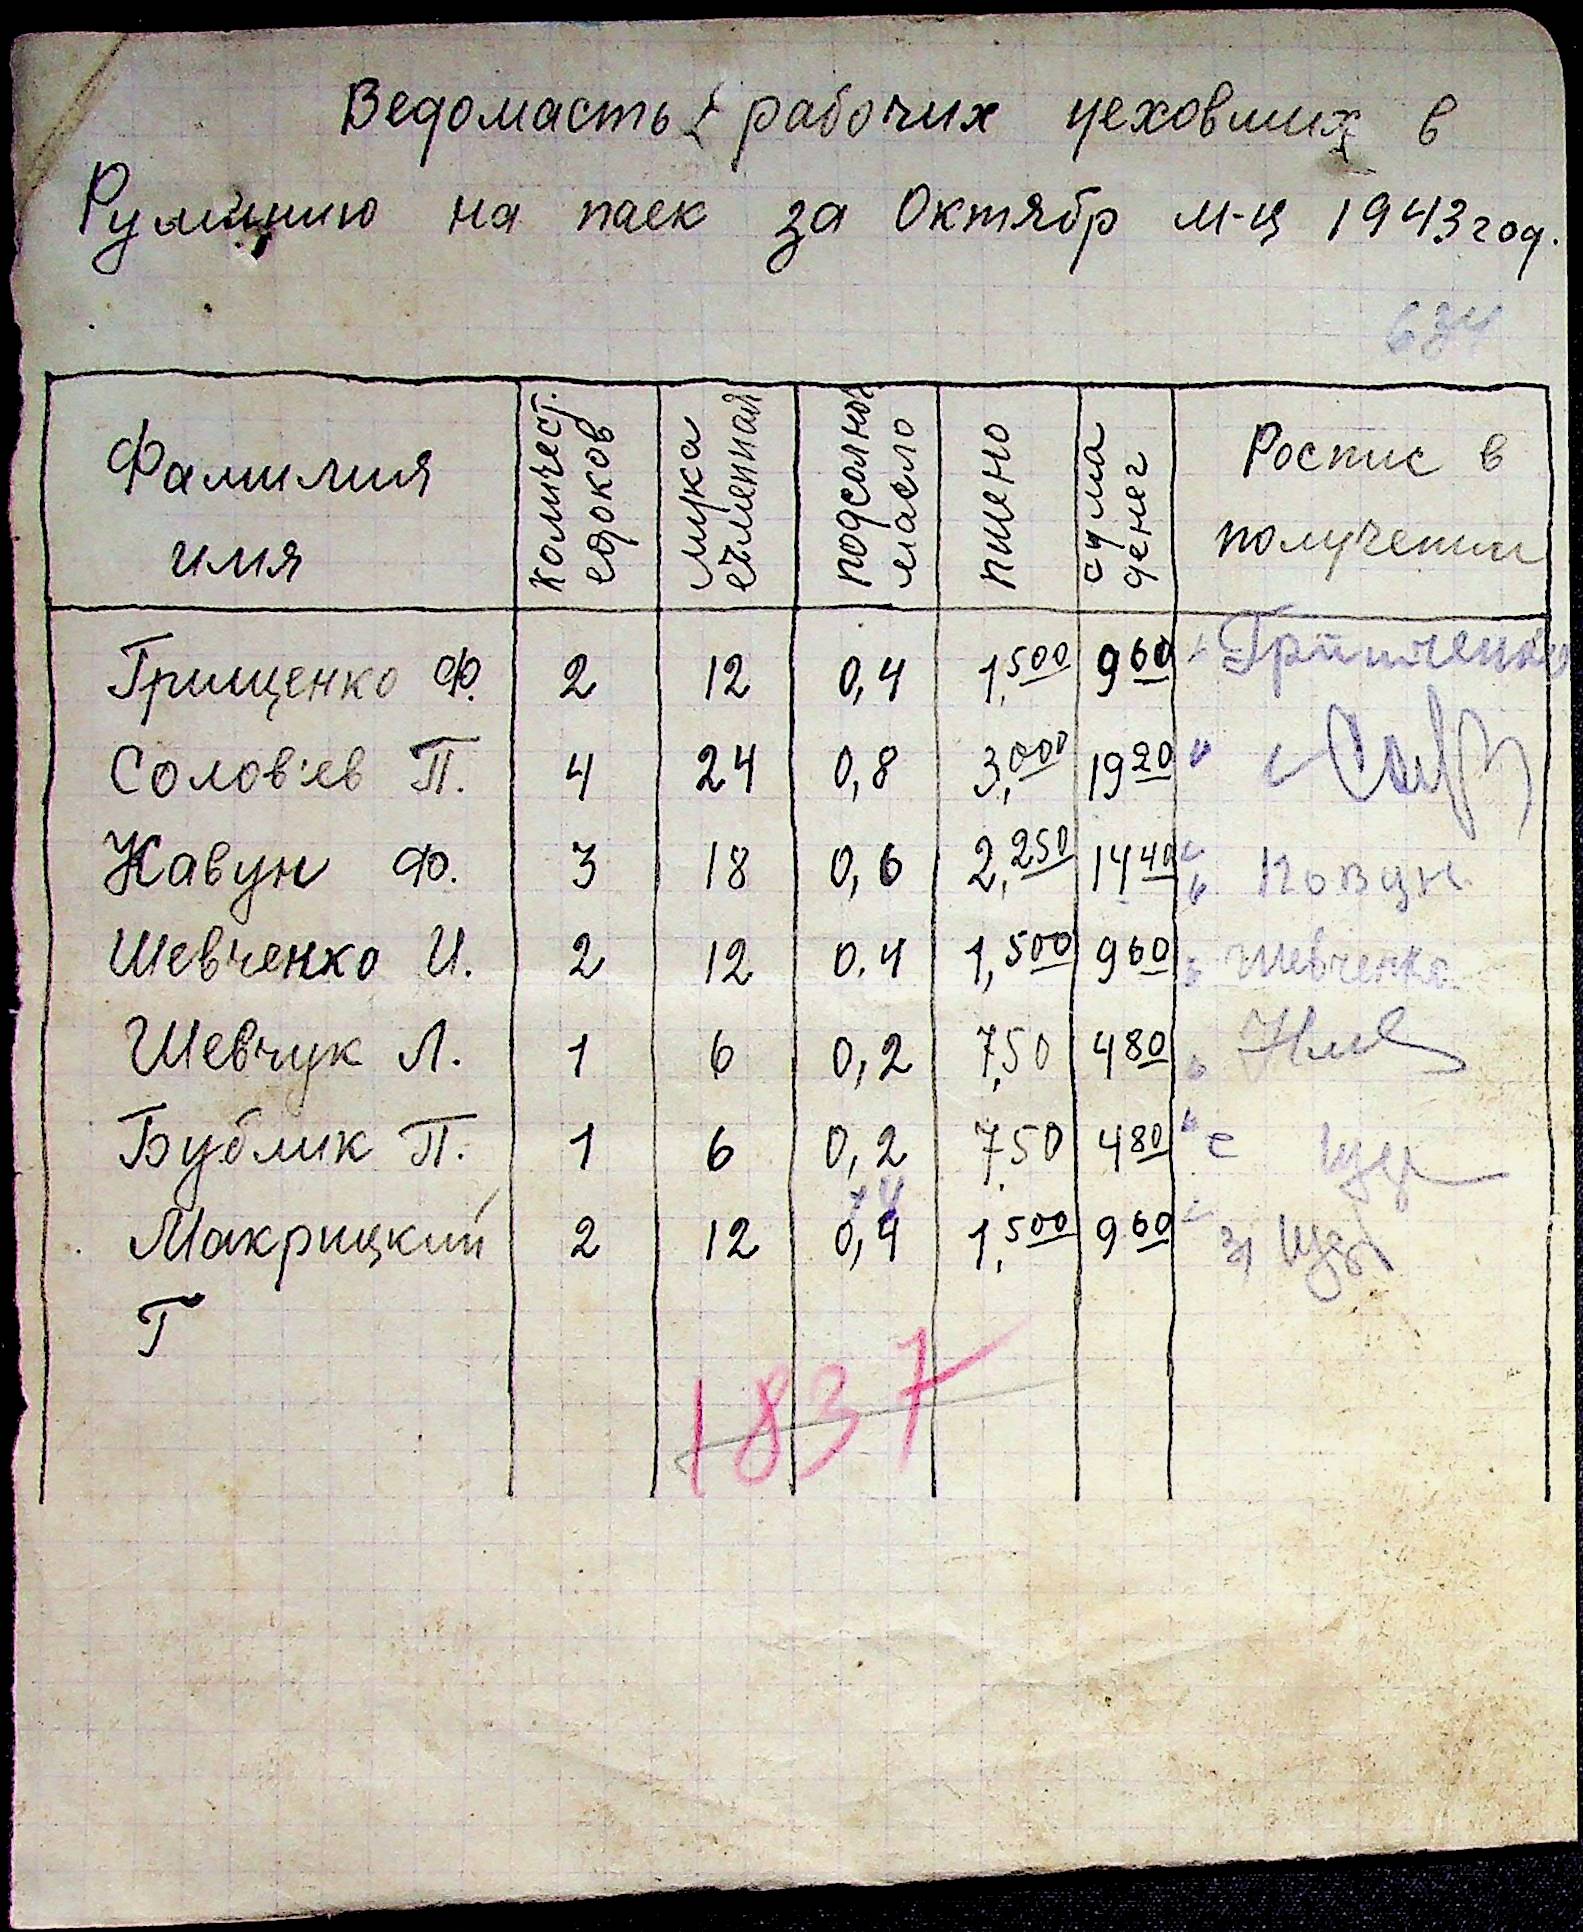 Ведомасть рабочих уеховших в
Румынию на паек за Октябр м-ц 1943 год.
Фамилия имя | количест. едоков | мука ечменная | подсолног масло | пшено | сума денег | Роспис в получении
Грищенко Ф. 2 12 0,4 1,500 960 Грищченко
Солов'ев П. 4 24 0,8 3,000 1920
Кавун Ф. 3 18 0,6 2,250 1440 Ковун
Шевченко И. 2 12 0.4 1,500 960 Шевченко
Шевчук Л. 1 6 0,2 7,50 480
Бублик П. 1 6 0,2 7,50 480
Макрицкий 2 12 0,4 1,500 960
Г
1837